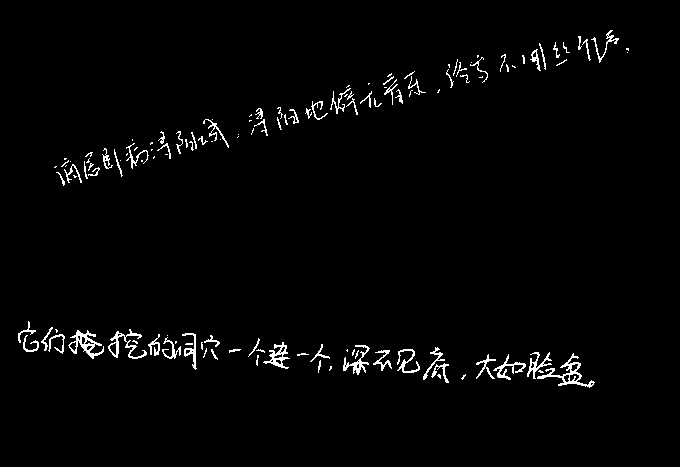 滴居卧病浔阳城，浔阳地僻无音乐，终岁不闻丝竹声.
它们挖的洞穴一个连一个，深不见底，大如脸盆。